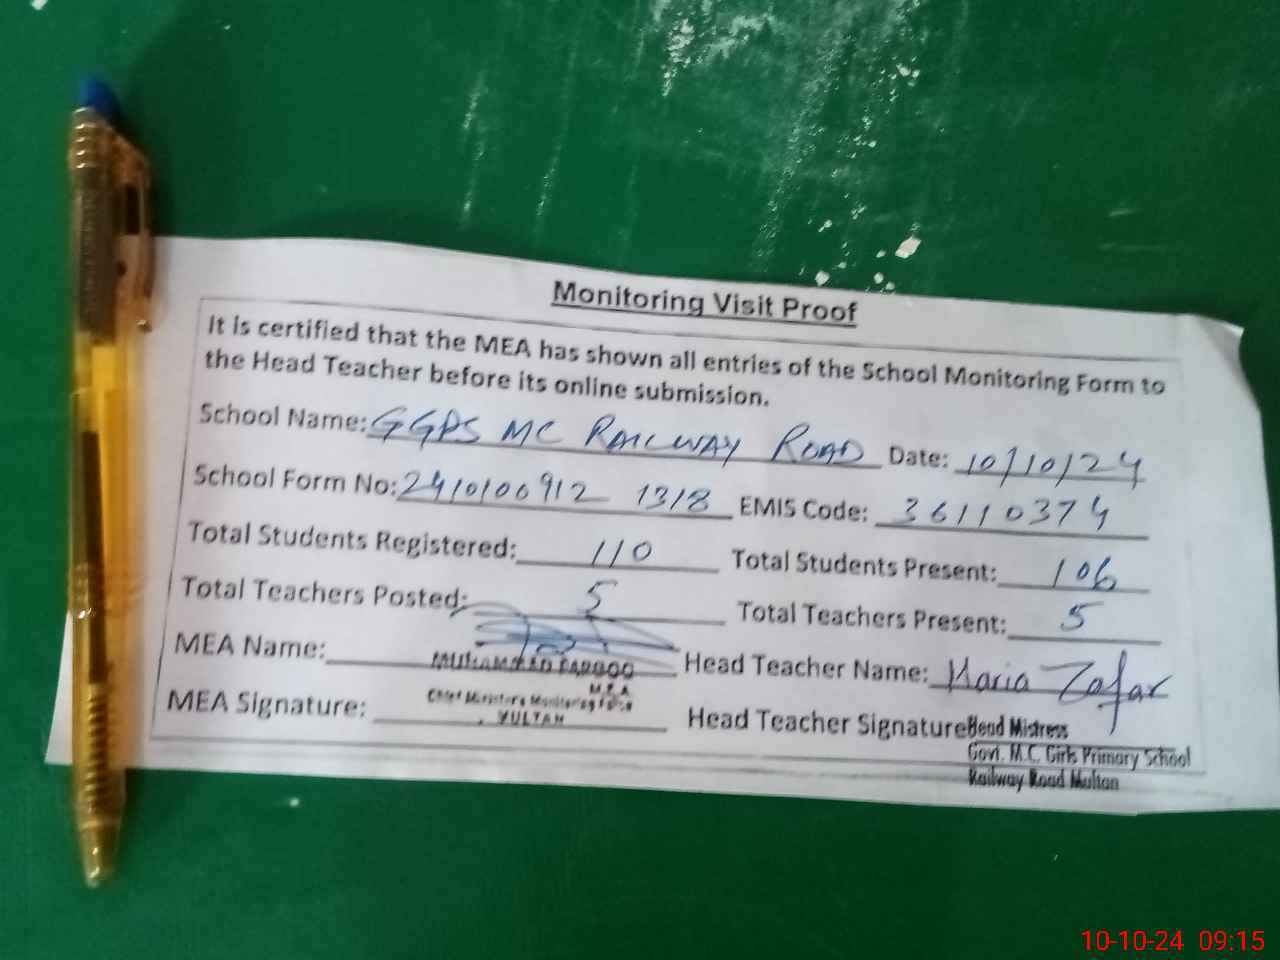 Monitoring Visit Proof
It is certified that the MEA has shown all entries of the School Monitoring Form to
the Head Teacher before its online submission.
School Name: GGPS MC RAILWAY ROAD Date: 10/10/24
School Form No: 2410100912 1318 EMIS Code: 36110374
Total Students Registered: 110 Total Students Present: 106
Total Teachers Posted: 5 Total Teachers Present: 5
MEA Name: MUHAMMAD FAROOQ Head Teacher Name: Maria Zafar
M.E.A
Chief Minister's Monitoring Force
MULTAN
MEA Signature: Head Teacher Signature
Head Mistress
Govt. M.C. Girls Primary School
Railway Road Multan
10-10-24 09:15